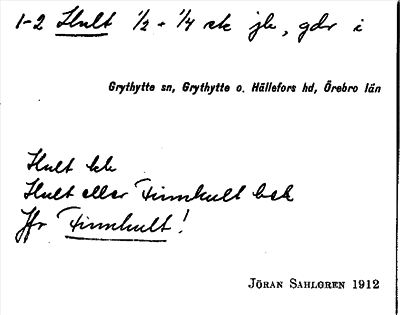 1-2 Hult 1/2 + 1/4 sk jb, gdr i
Grythytte sn, Grythytte o. Hällefors hd, Örebro län
Hult kk
Hult eller Finnhult bek
Jfr Finnhult!
JÖRAN SAHLGREN 1912